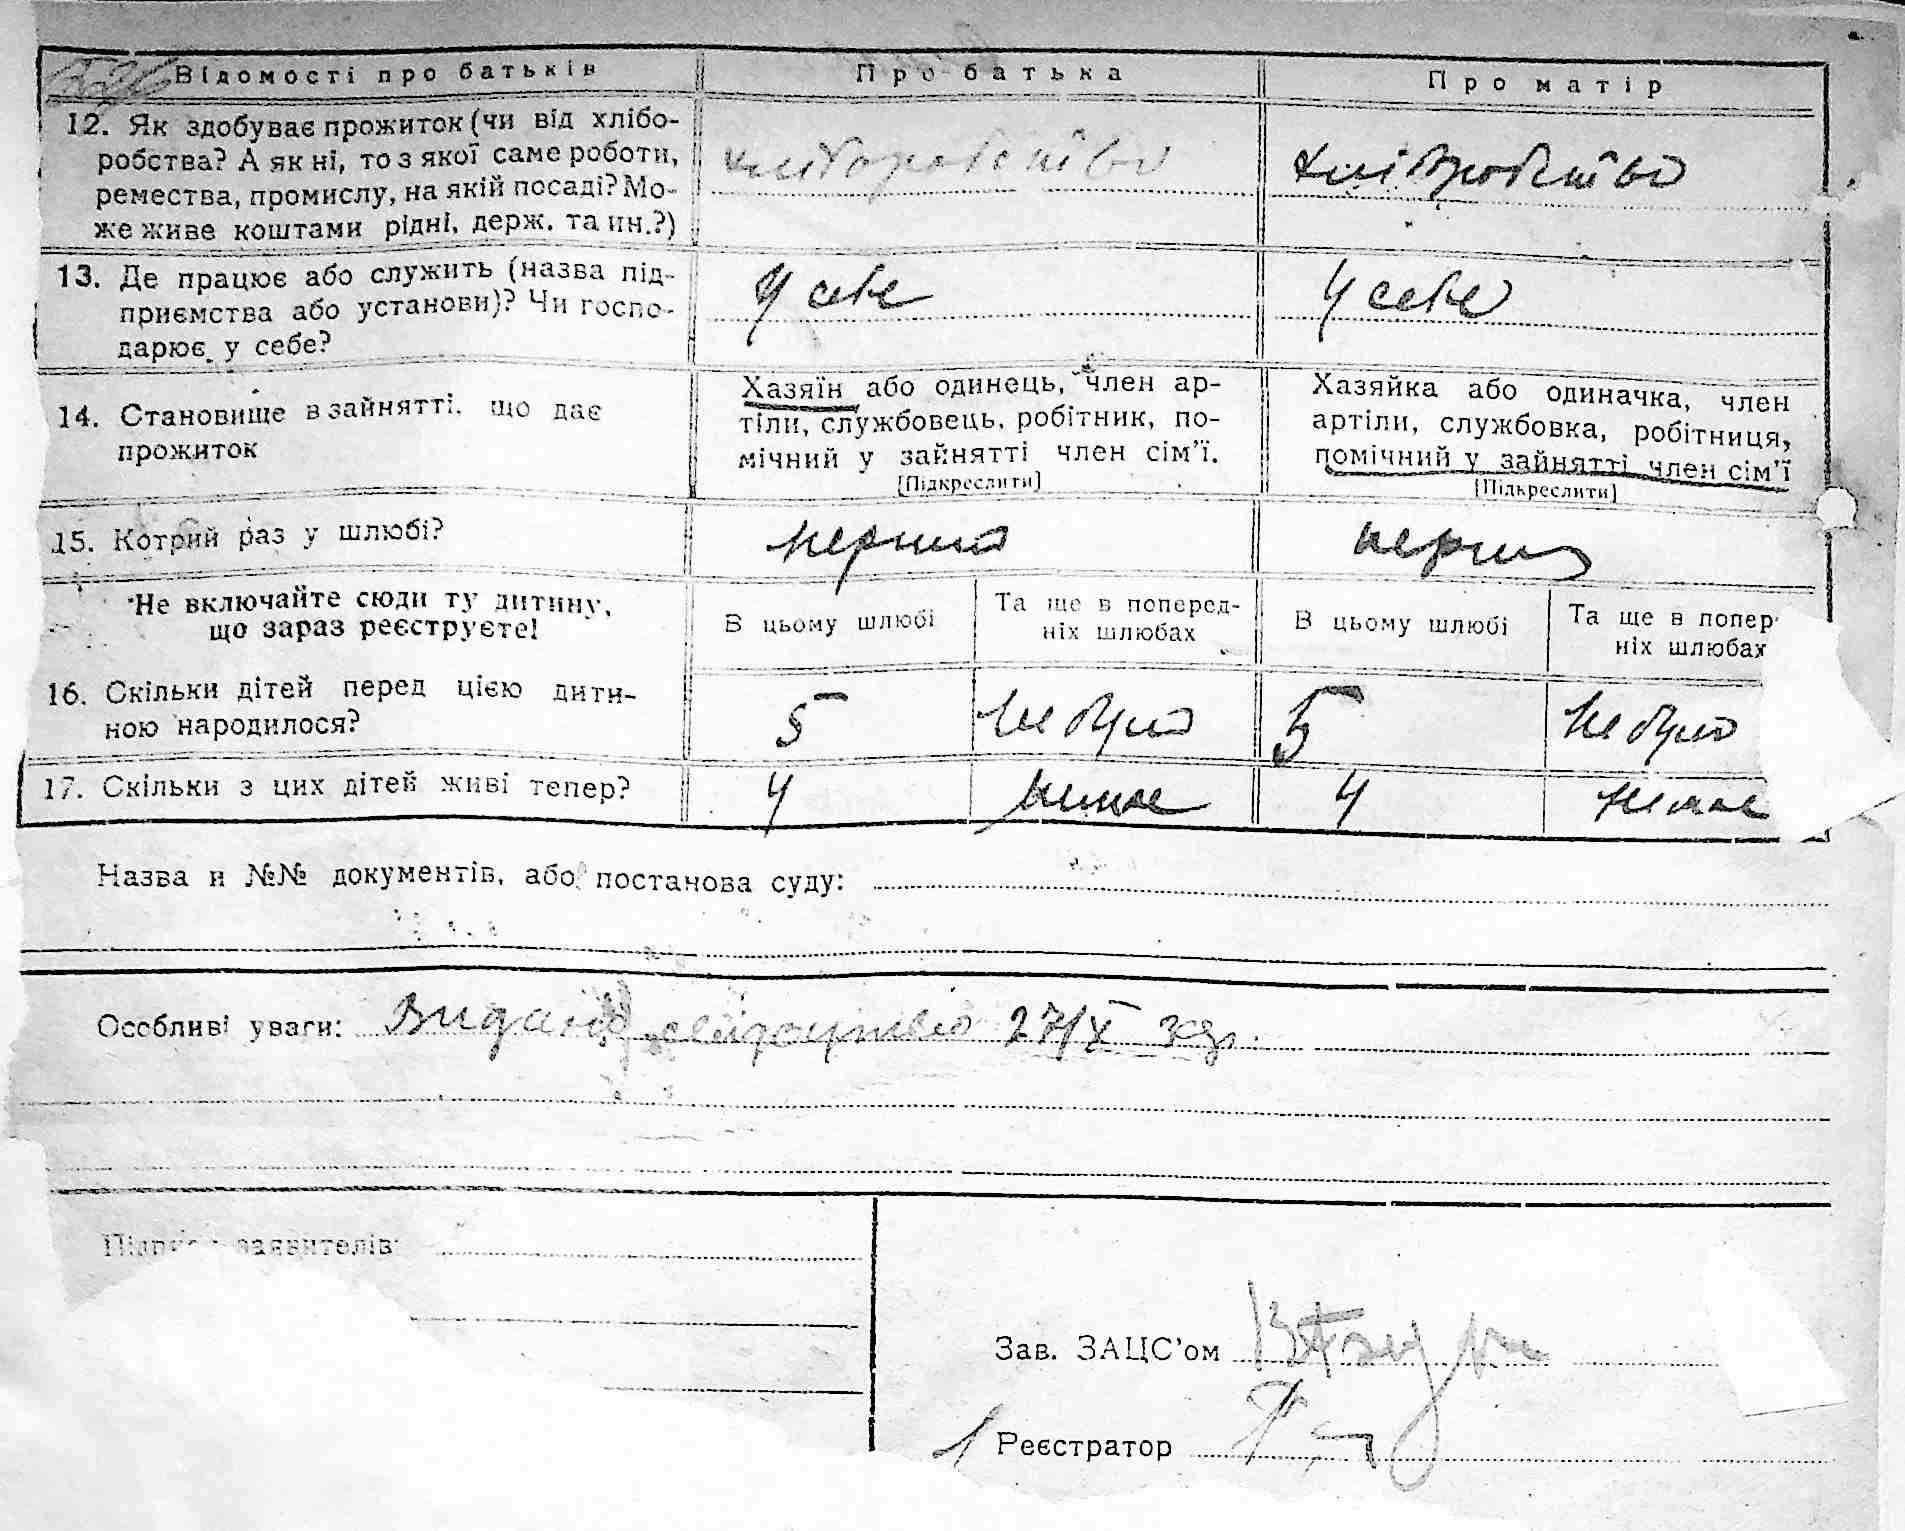 Відомості про батьків
Про батька
Про матір
12. Як здобуває прожиток (чи від хлібо-
робства? А як ні, то з якої саме роботи,
ремества, промислу, на якій посаді? Мо-
же живе коштами рідні, держ. та ин.?)
хліборобство
хліборобство
13. Де працює або служить (назва під-
приємства або установи)? Чи госпо-
дарює у себе?
У себе
У себе
14. Становище в зайнятті, що дає
прожиток
Хазяїн або одинець, член ар-
тіли, службовець, робітник, по-
мічний у зайнятті член сім'ї.
[Підкреслити]
Хазяйка або одиначка, член
артіли, службовка, робітниця,
помічний у зайнятті член сім'ї
[Підкреслити]
15. Котрий раз у шлюбі?
перший
перший
Не включайте сюди ту дитину,
що зараз реєструєте!
В цьому шлюбі
Та ще в поперед-
ніх шлюбах
В цьому шлюбі
Та ще в попер
ніх шлюбах
16. Скільки дітей перед цією дити-
ною народилося?
5
Не було
5
Не було
17. Скільки з цих дітей живі тепер?
4
немає
4
немає
Назва и №№ документів, або постанова суду:
Особливі уваги: Видано свідоцтво 27/X
заявителів
Зав. ЗАЦС'ом
Реєстратор